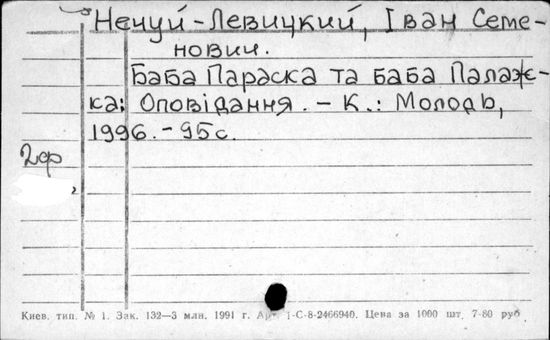 Нечуй-Левицкий, Іван Семе-
нович.
Баба Параска та баба Палаж-
ка: Оповідання. - К.: Молодь,
1996. - 95с.
2ф
Киев. тип. № 1. Зак. 132—3 млн. 1991 г. 1-С-8-2466940. Цена за 1000 шт. 7-80 руб